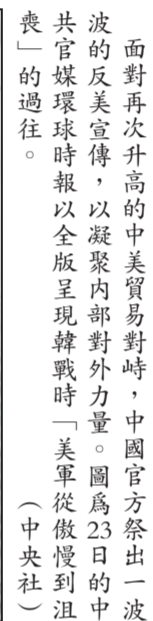 面對再次升高的中美貿易對峙，中國官方祭出一波
波的反美宣傳，以凝聚內部對外力量。圖爲23日的中
共官媒環球時報以全版呈現韓戰時「美軍從傲慢到沮
喪」的過往。（中央社）